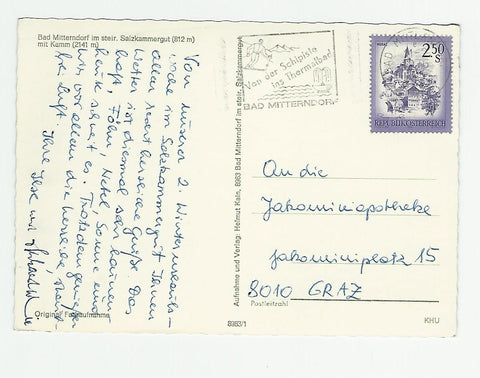 Bad Mitterndorf im steir. Salzkammergut (812 m)
mit Kamm (2141 m)
Von unserer 2. Winterurlaubs-
woche im Salzkammergut Ihnen
allen recht herzliche Grüße. Das
Wetter ist diesmal sehr launen-
haft, Föhn, Nebel, Sonne und
heute schneit es. Trotzdem genießen
wir vor allem die herrliche, staub-
freie Luft.
Ihre Ilse und
Original Farbaufnahme
8983/1
KHU
Aufnahme und Verlag: Helmut Kain, 8983 Bad Mitterndorf im steir. Salzkammergut
Von der Schipiste
ins Thermalbad
BAD MITTERNDORF
2.50
S
REPUBLIK ÖSTERREICH
An die
Jakominiapotheke
Jakominiplatz 15
8010 GRAZ
Postleitzahl